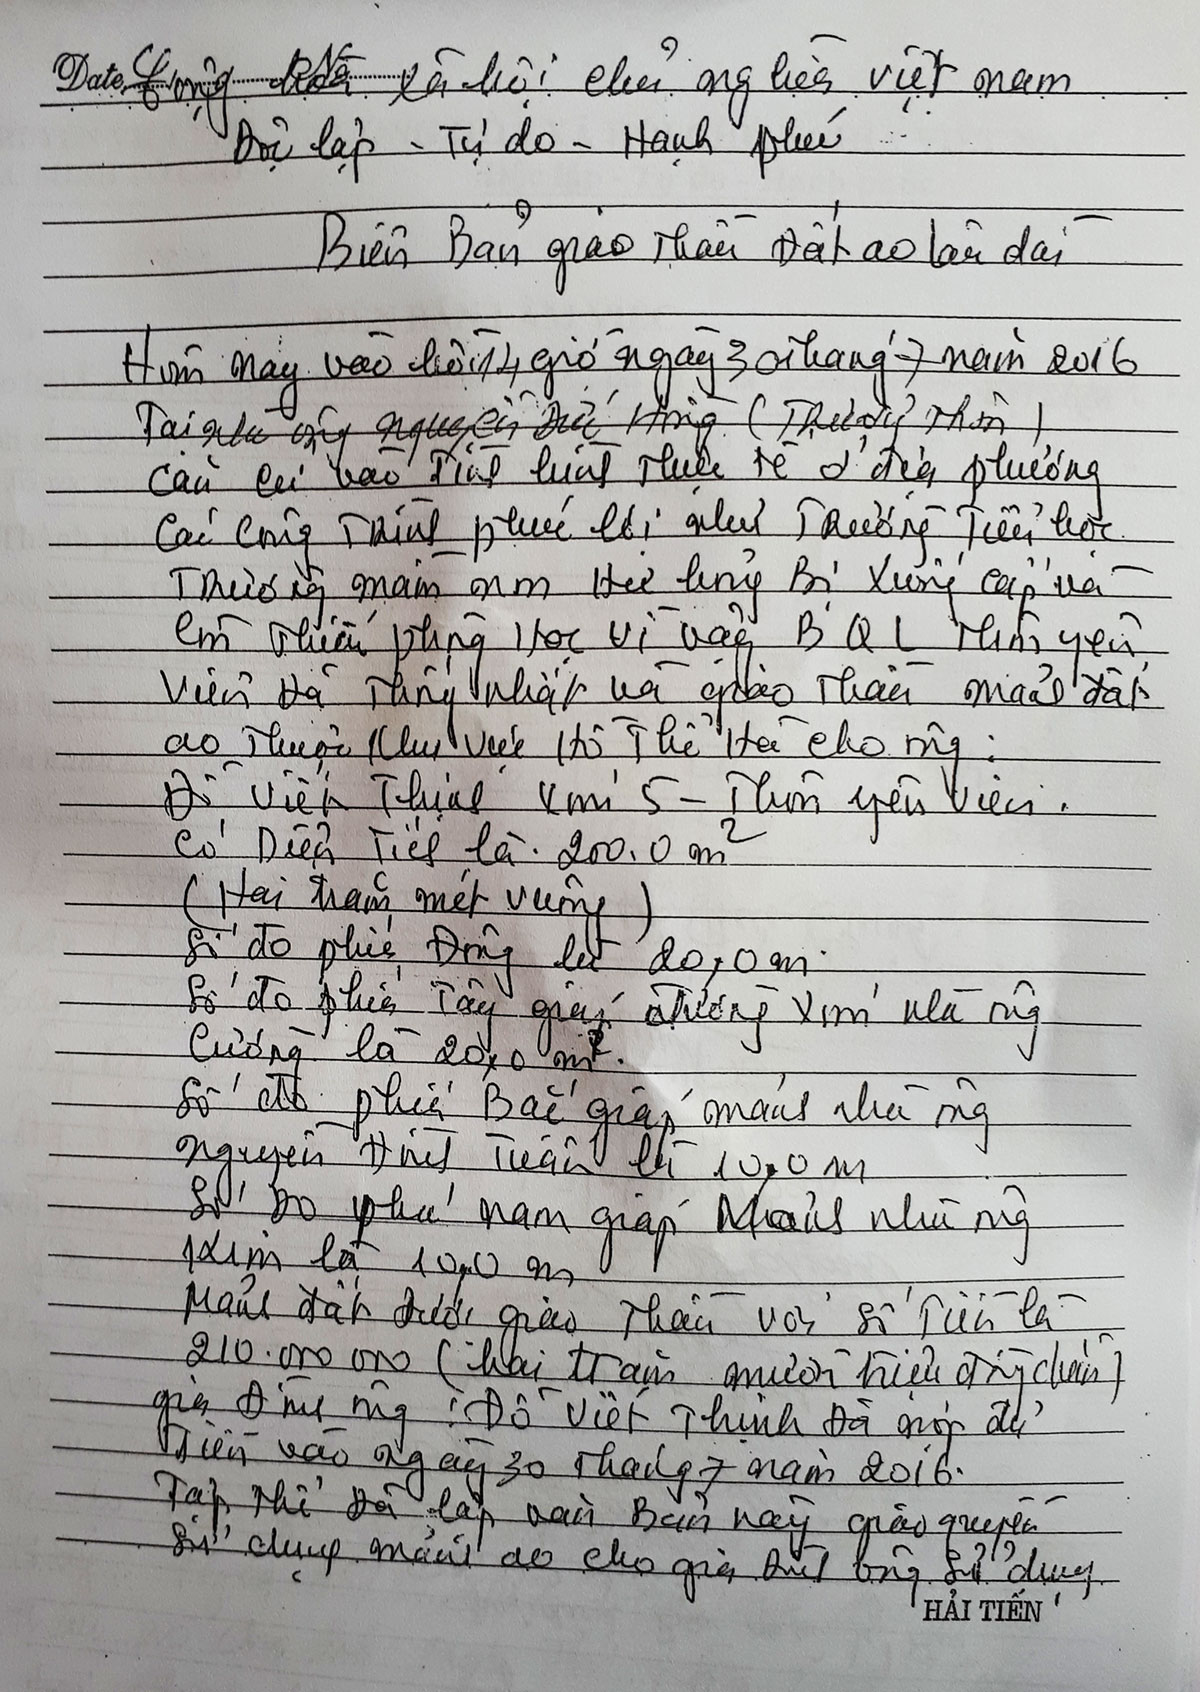 Date. Cộng hoà xã hội chủ nghĩa việt nam
Độc lập - Tự do - Hạnh phúc
Biên Bản giao thầu Đất ao lâu dài
Hôm nay vào hồi 14 giờ ngày 30 tháng 7 năm 2016
Tại nhà ông Nguyễn Đức Hùng (Trưởng Thôn)
Căn cứ vào Tình hình thực tế ở địa phương
Các công Trình phúc lợi như Trường Tiểu học
Trường mầm non Hư hỏng Bị xuống cấp và
còn thiếu phòng Học vì vậy B Q L Thôn yên
Viên Đã Thống nhất và giao thầu mảnh đất
ao thuộc khu vực Hồ Thể Hà cho ông:
Đỗ Viết Thịnh xóm 5 - Thôn yên Viên.
Có Diện Tích là. 200.0 m²
(Hai trăm mét vuông)
Số đo phía Đông là 20,0m.
Số đo phía Tây giáp đường xóm nhà ông
Cường là 20,0 m.
Số đo phía Bắc giáp mảnh nhà ông
nguyễn Đình Tuân là 10,0 m
Số Đo phía nam giáp Mảnh nhà ông
Kim là 10,0 m
Mảnh đất được giao thầu với số Tiền là
210.000 000 (hai trăm mười triệu đồng chẵn)
gia Đình ông: Đỗ Viết Thịnh Đã nộp đủ
Tiền vào ngày 30 Tháng 7 năm 2016.
Tập thể Đã lập văn Bản này giao quyền
Sử dụng mảnh ao cho gia Đình ông sử dụng
HẢI TIẾN